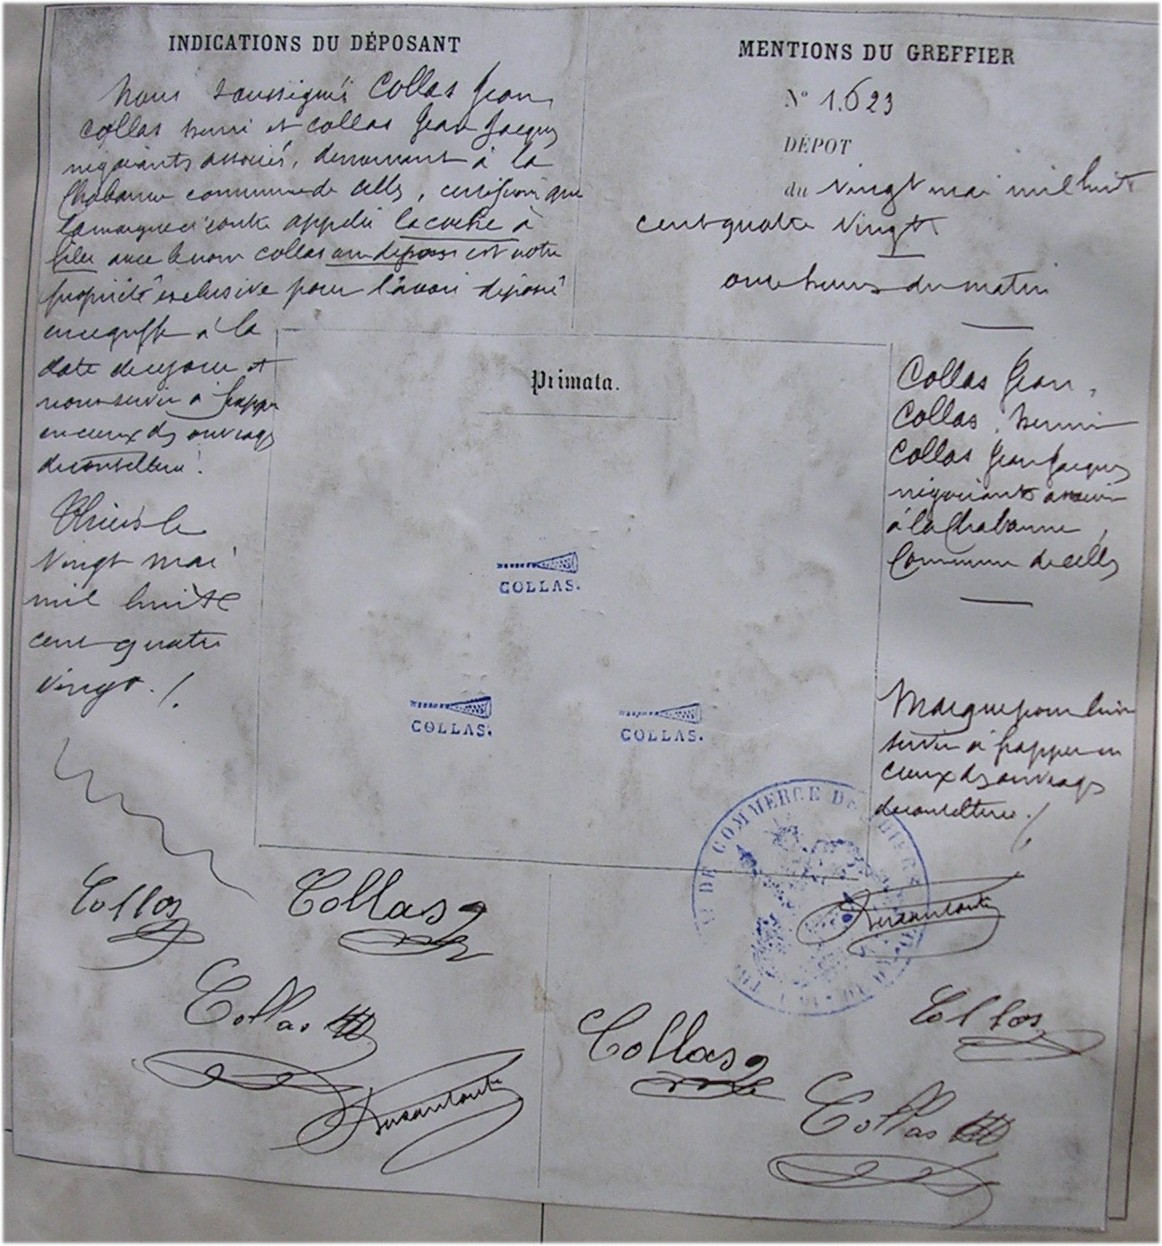 INDICATIONS DU DÉPOSANT
Nous soussignés Collas Jean
Collas henri et Collas Jean Jacques
négociants associés, demeurant à la
Chabanne commune de Celles, certifions que
la marque ci contre appelée la cache à
filer avec le nom collas au dessous est notre
propriété exclusive pour l'avoir déposé
au greffe à la
date de ce jour et
nous servir à frapper
en creux des ouvrages
de coutellerie.
Thiers le
vingt mai
mil huit
cent quatre
vingt./.
Collas
Collas
Collas
MENTIONS DU GREFFIER
N° 1.623
DÉPOT
du vingt mai mil huit
cent quatre vingt
onze heures du matin
Primata.
COLLAS.
COLLAS.
COLLAS.
Collas Jean,
Collas, henri
Collas Jean Jacques
négociants associés
à la Chabanne,
Commune de Celles
Marque pour leur
servir à frapper en
creux des ouvrages
de coutellerie./
DE COMMERCE DE THIERS
Collas
Collas
Collas